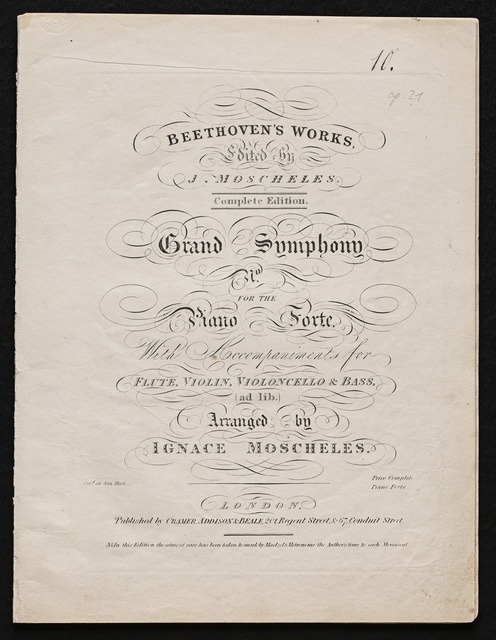 10.
op 21
BEETHOVEN'S WORKS,
Edited by
J. MOSCHELES.
Complete Edition.
Grand Symphony
No.
FOR THE
Piano Forte,
With Accompaniments for
FLUTE, VIOLIN, VIOLONCELLO & BASS,
(ad lib.)
Arranged by
IGNACE MOSCHELES.
Ent.d at Sta. Hall.
Price Complete
Piano Forte
LONDON,
Published by CRAMER, ADDISON & BEALE, 201, Regent Street, & 67, Conduit Street
In this Edition the utmost care has been taken to mark by Maelzel's Metronome the Author's time to each Movement.